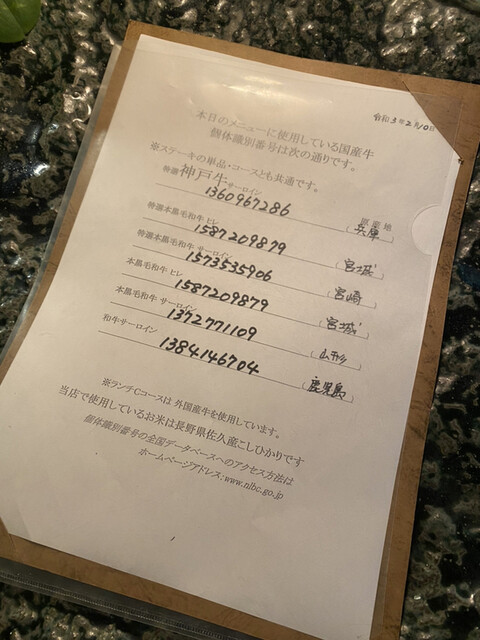 令和3年2月10日
本日のメニューに使用している国産牛
個体識別番号は次の通りです。
※ステーキの単品・コースとも共通です。
原産地
特選神戸牛サーロイン 1360967286 (兵庫)
特選本黒毛和牛 ヒレ 1587209879 (宮城)
特選本黒毛和牛 サーロイン 1573535906 (宮崎)
本黒毛和牛 ヒレ 1587209879 (宮城)
本黒毛和牛 サーロイン 1372771109 (山形)
和牛サーロイン 1384146704 (鹿児島)
※ランチCコースは 外国産牛を使用しています。
当店で使用しているお米は長野県佐久産こしひかりです
個体識別番号の全国データベースへのアクセス方法は
ホームページアドレス:www.nlbc.go.jp